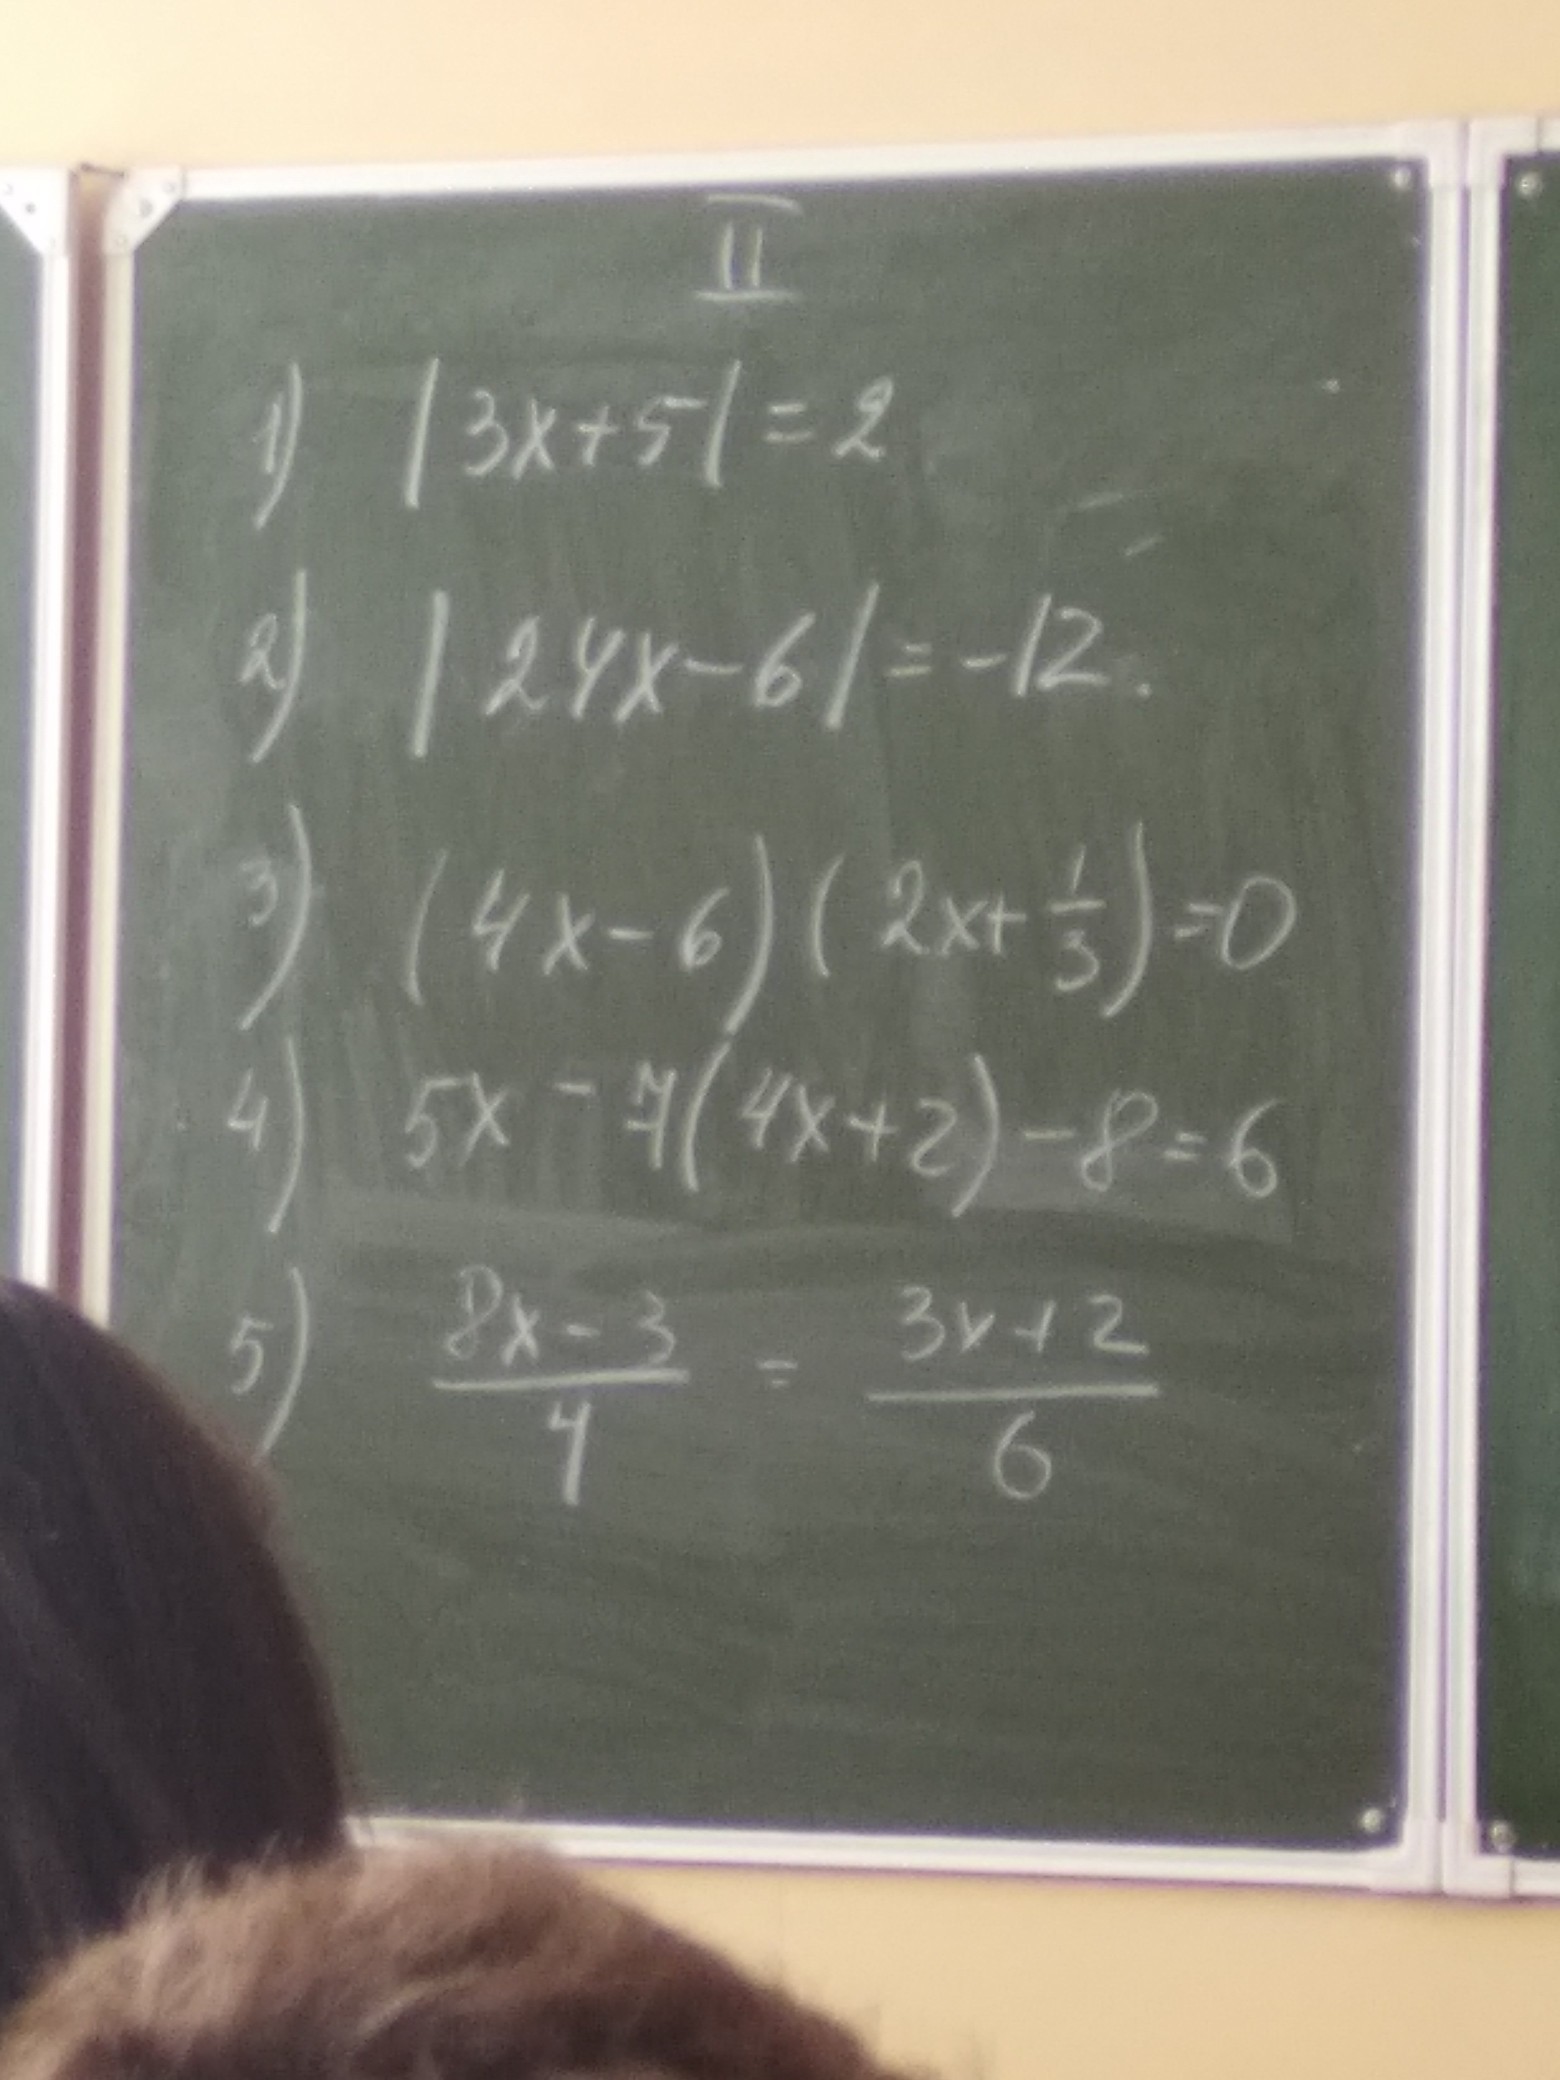 II
1) |3x+5|=2
2) |24x-6|=-12.
3) (4x-6)(2x+1/3)=0
4) 5x-7(4x+2)-8=6
5) (8x-3)/4 = (3x+2)/6